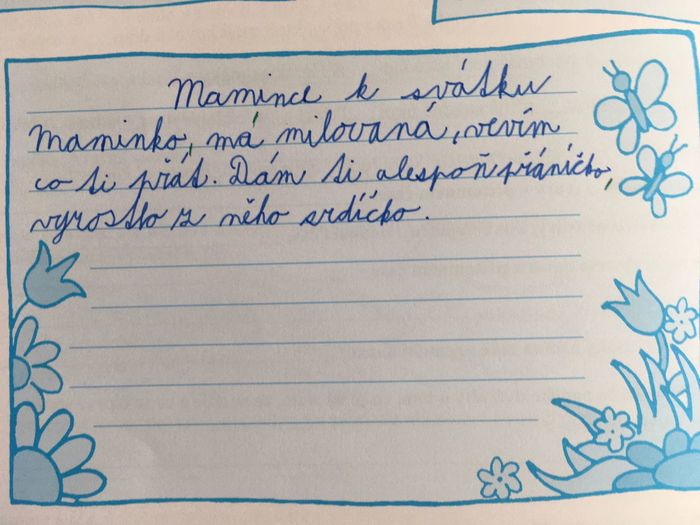 Mamince k svátku
Maminko, má milovaná, nevím
co ti přát. Dám ti alespoň přáníčko,
vyrostlo z něho srdíčko.